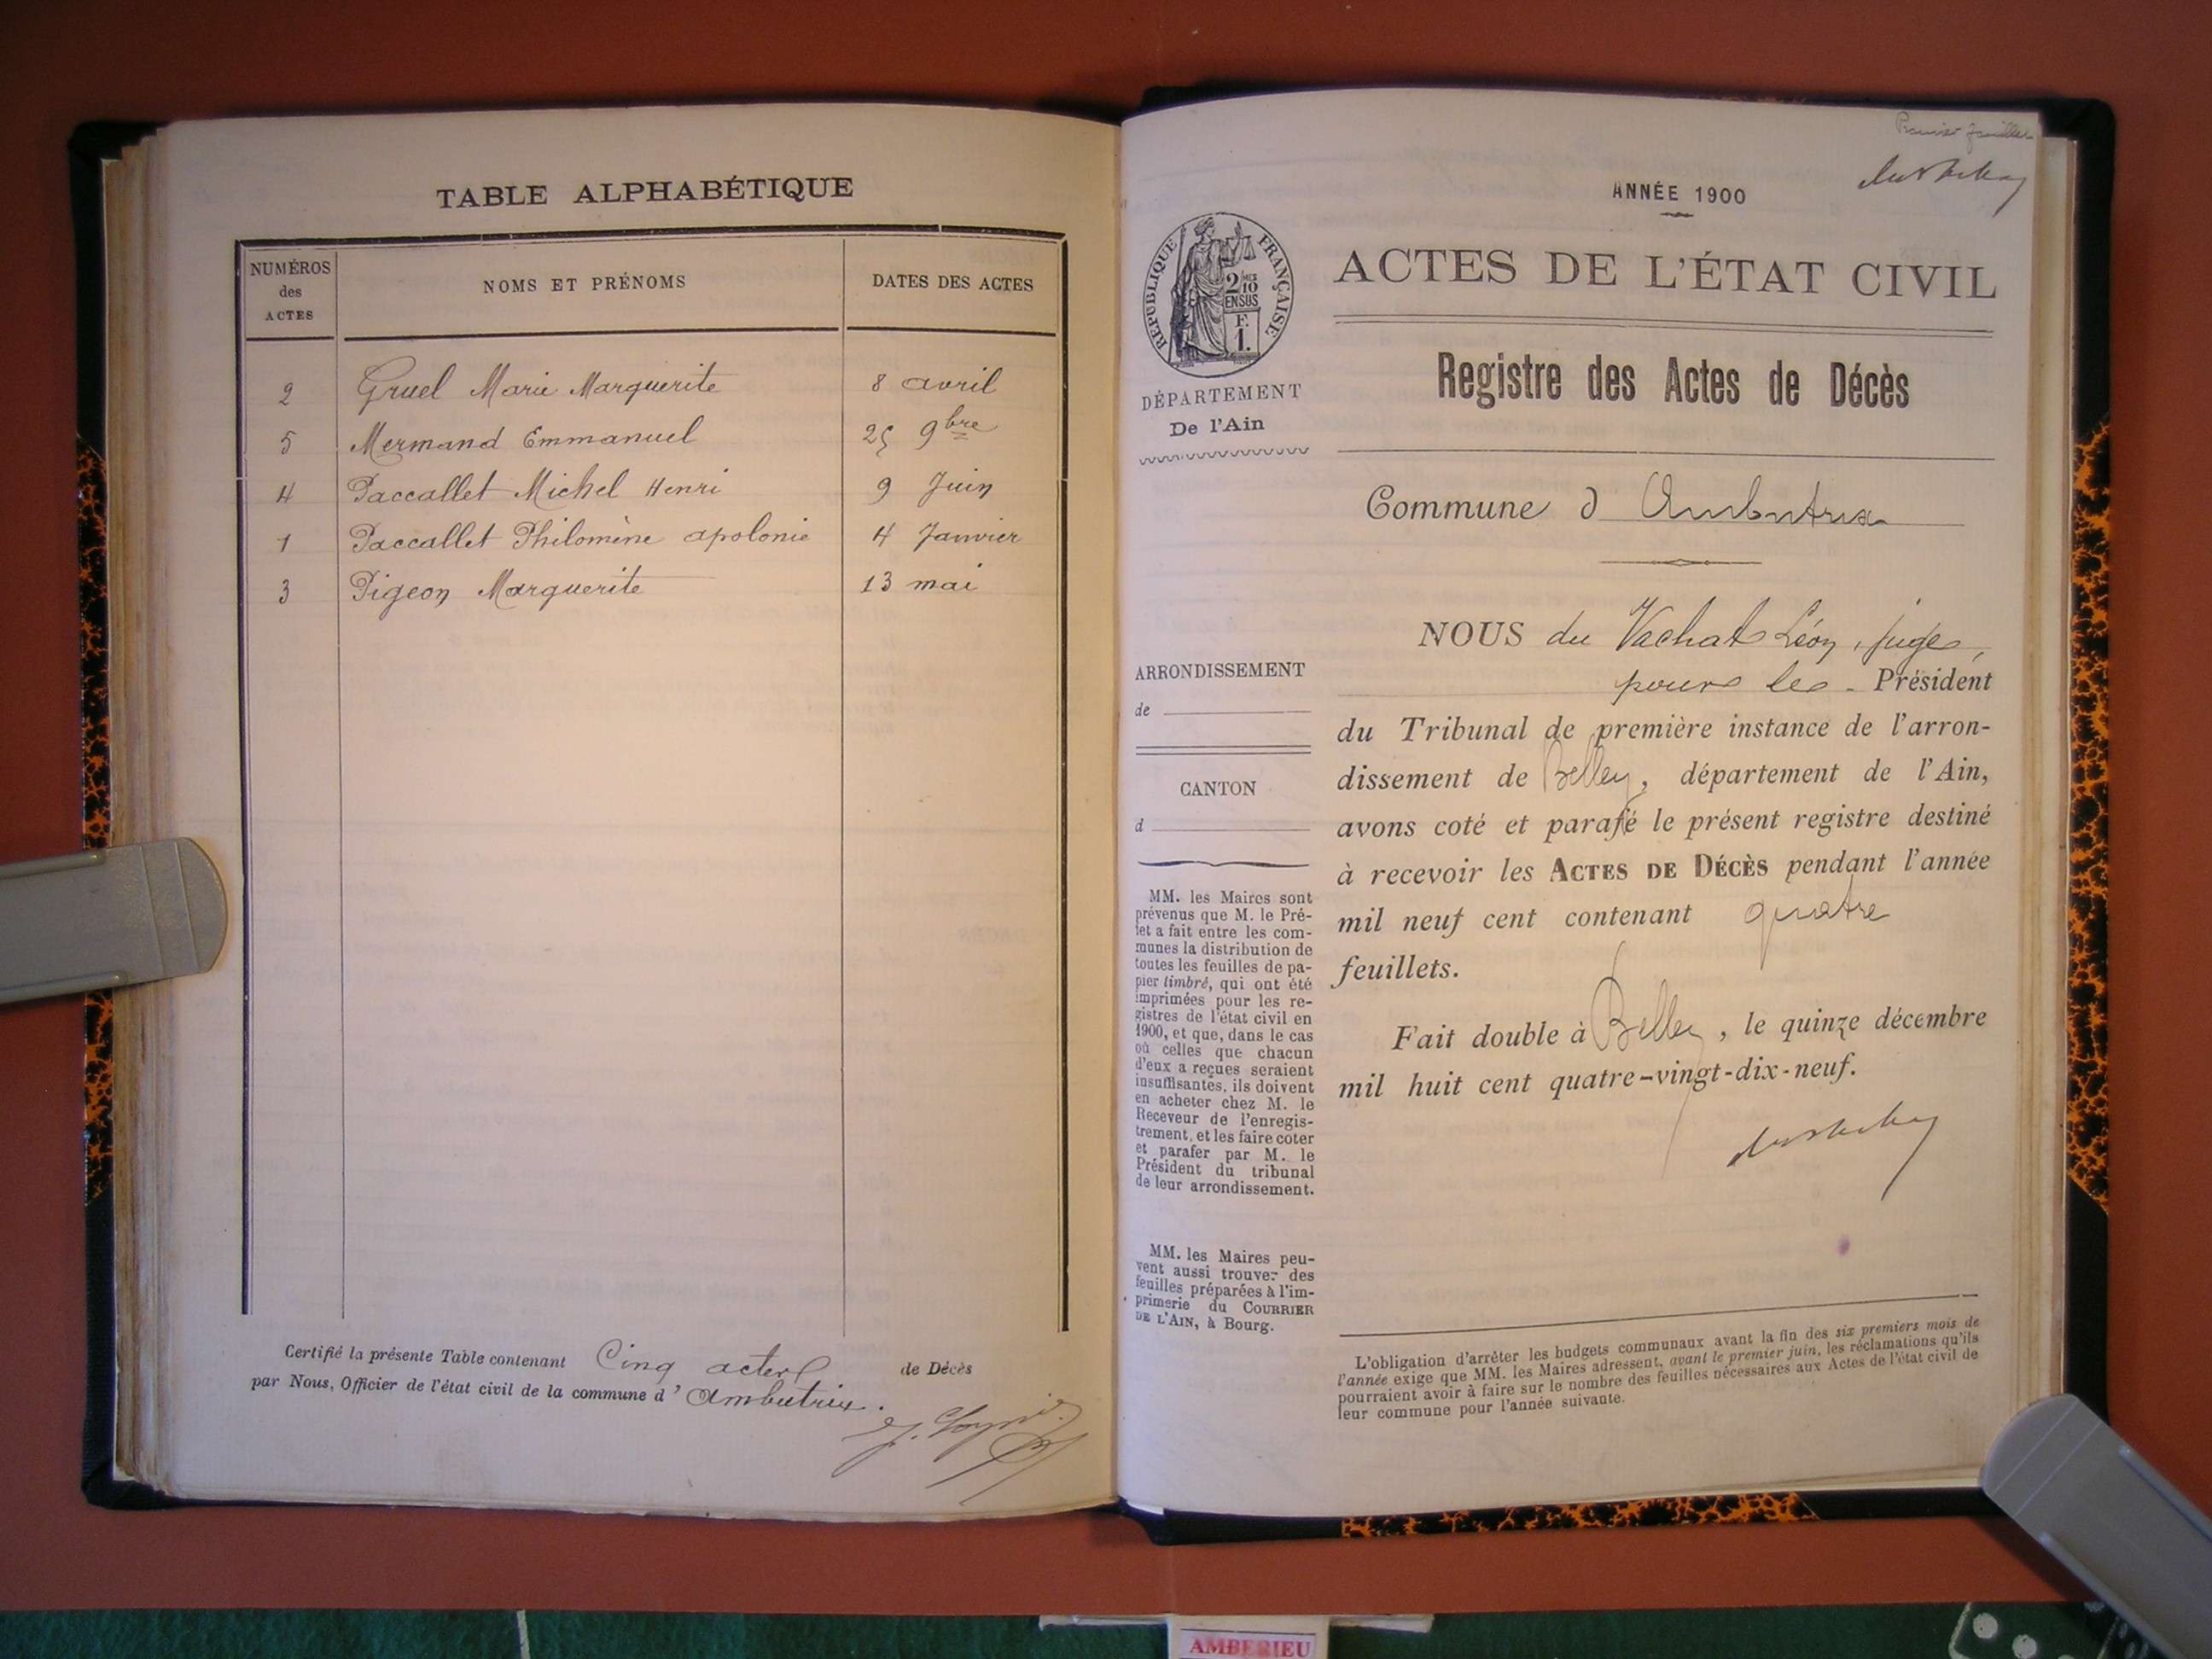 TABLE ALPHABÉTIQUE
NUMÉROS
des
ACTES
NOMS ET PRÉNOMS
DATES DES ACTES
2 Gruel Marie Marguerite 8 avril
5 Mermand Emmanuel 25 9bre
4 Paccallet Michel Henri 9 Juin
1 Paccallet Philomène apolonie 4 Janvier
3 Pigeon Marguerite 13 mai
Certifié la présente Table contenant Cinq actes de Décès
par Nous, Officier de l'état civil de la commune d' Ambutrix.
Premier feuillet
ANNÉE 1900
RÉPUBLIQUE FRANÇAISE
2/10
EN SUS
F.
1.
DÉPARTEMENT
De l'Ain
ARRONDISSEMENT
de
CANTON
d
MM. les Maires sont
prévenus que M. le Pré-
fet a fait entre les com-
munes la distribution de
toutes les feuilles de pa-
pier timbré, qui ont été
imprimées pour les re-
gistres de l'état civil en
1900, et que, dans le cas
où celles que chacun
d'eux a reçues seraient
insuffisantes, ils doivent
en acheter chez M. le
Receveur de l'enregis-
trement, et les faire coter
et parafer par M. le
Président du tribunal
de leur arrondissement.
MM. les Maires peu-
vent aussi trouver des
feuilles préparées à l'im-
primerie du COURRIER
DE L'AIN, à Bourg.
ACTES DE L'ÉTAT CIVIL
Registre des Actes de Décès
Commune d Ambutrix
NOUS du Vachat Léon, juge,
pour le - Président
du Tribunal de première instance de l'arron-
dissement de Belley, département de l'Ain,
avons coté et parafé le présent registre destiné
à recevoir les ACTES DE DÉCÈS pendant l'année
mil neuf cent contenant quatre
feuillets.
Fait double à Belley, le quinze décembre
mil huit cent quatre-vingt-dix-neuf.
L'obligation d'arrêter les budgets communaux avant la fin des six premiers mois de
l'année exige que MM. les Maires adressent, avant le premier juin, les réclamations qu'ils
pourraient avoir à faire sur le nombre des feuilles nécessaires aux Actes de l'état civil de
leur commune pour l'année suivante.
AMBERIEU